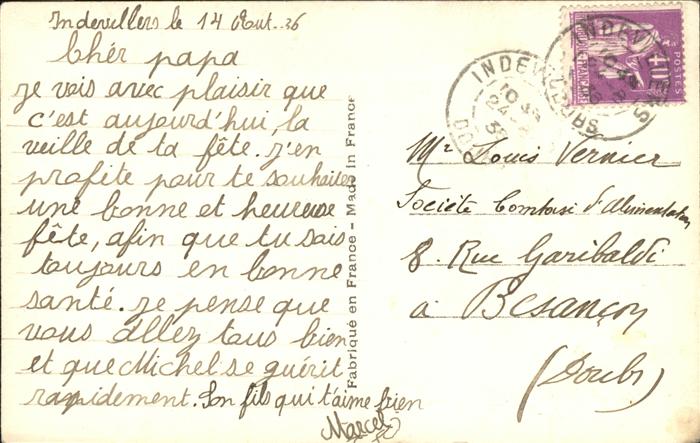 Indevillers le 14 Août 36
Chér papa
je vois avec plaisir que
c'est aujourd'hui, la
veille de ta fête. j'en
profite pour te souhaiter
une bonne et heureuse
fête, afin que tu sois
toujours en bonne
santé. je pense que
vous allez tous bien
et que Michel se guérit
rapidement. Son fils qui t'aime bien
Marcel
Fabriqué en France - Made in France
INDEVILLERS
DOUBS
POSTES
Mr Louis Vernier
Société Comtoise d'alimentation
8. Rue Garibaldi
à Besançon
(Doubs)